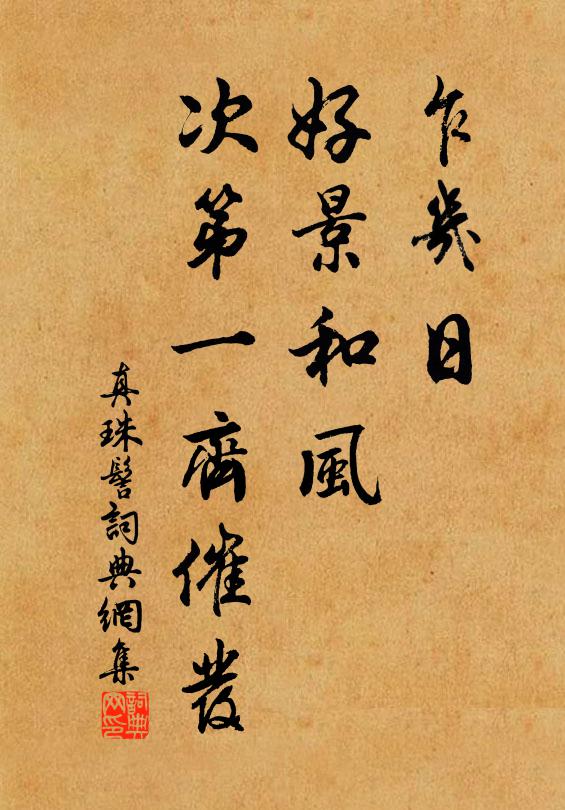 乍幾日
好景和風
次第一齊催發
真珠髻詞典網集
詞典
网印